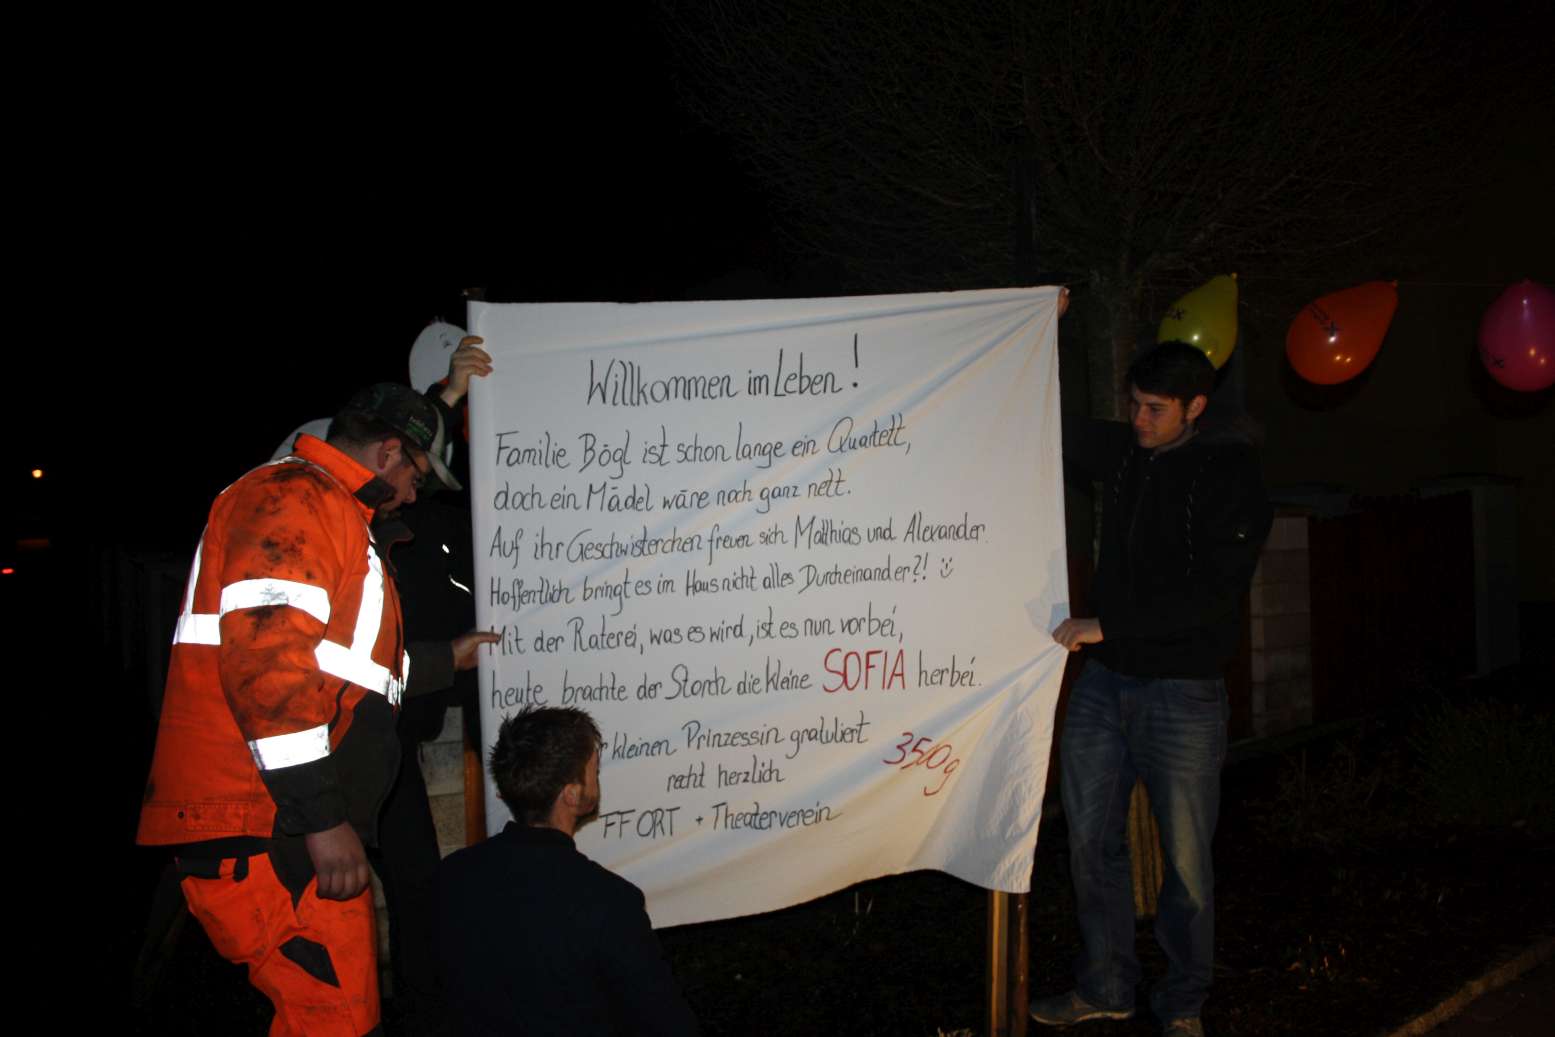 Willkommen im Leben!
Familie Bögl ist schon lange ein Quartett,
doch ein Mädel wäre noch ganz nett.
Auf ihr Geschwisterchen freuen sich Matthias und Alexander.
Hoffentlich bringt es im Haus nicht alles Durcheinander?! :)
Mit der Raterei, was es wird, ist es nun vorbei,
heute brachte der Storch die kleine SOFIA herbei.
kleinen Prinzessin gratuliert
3500g
recht herzlich
FFORT + Theaterverein